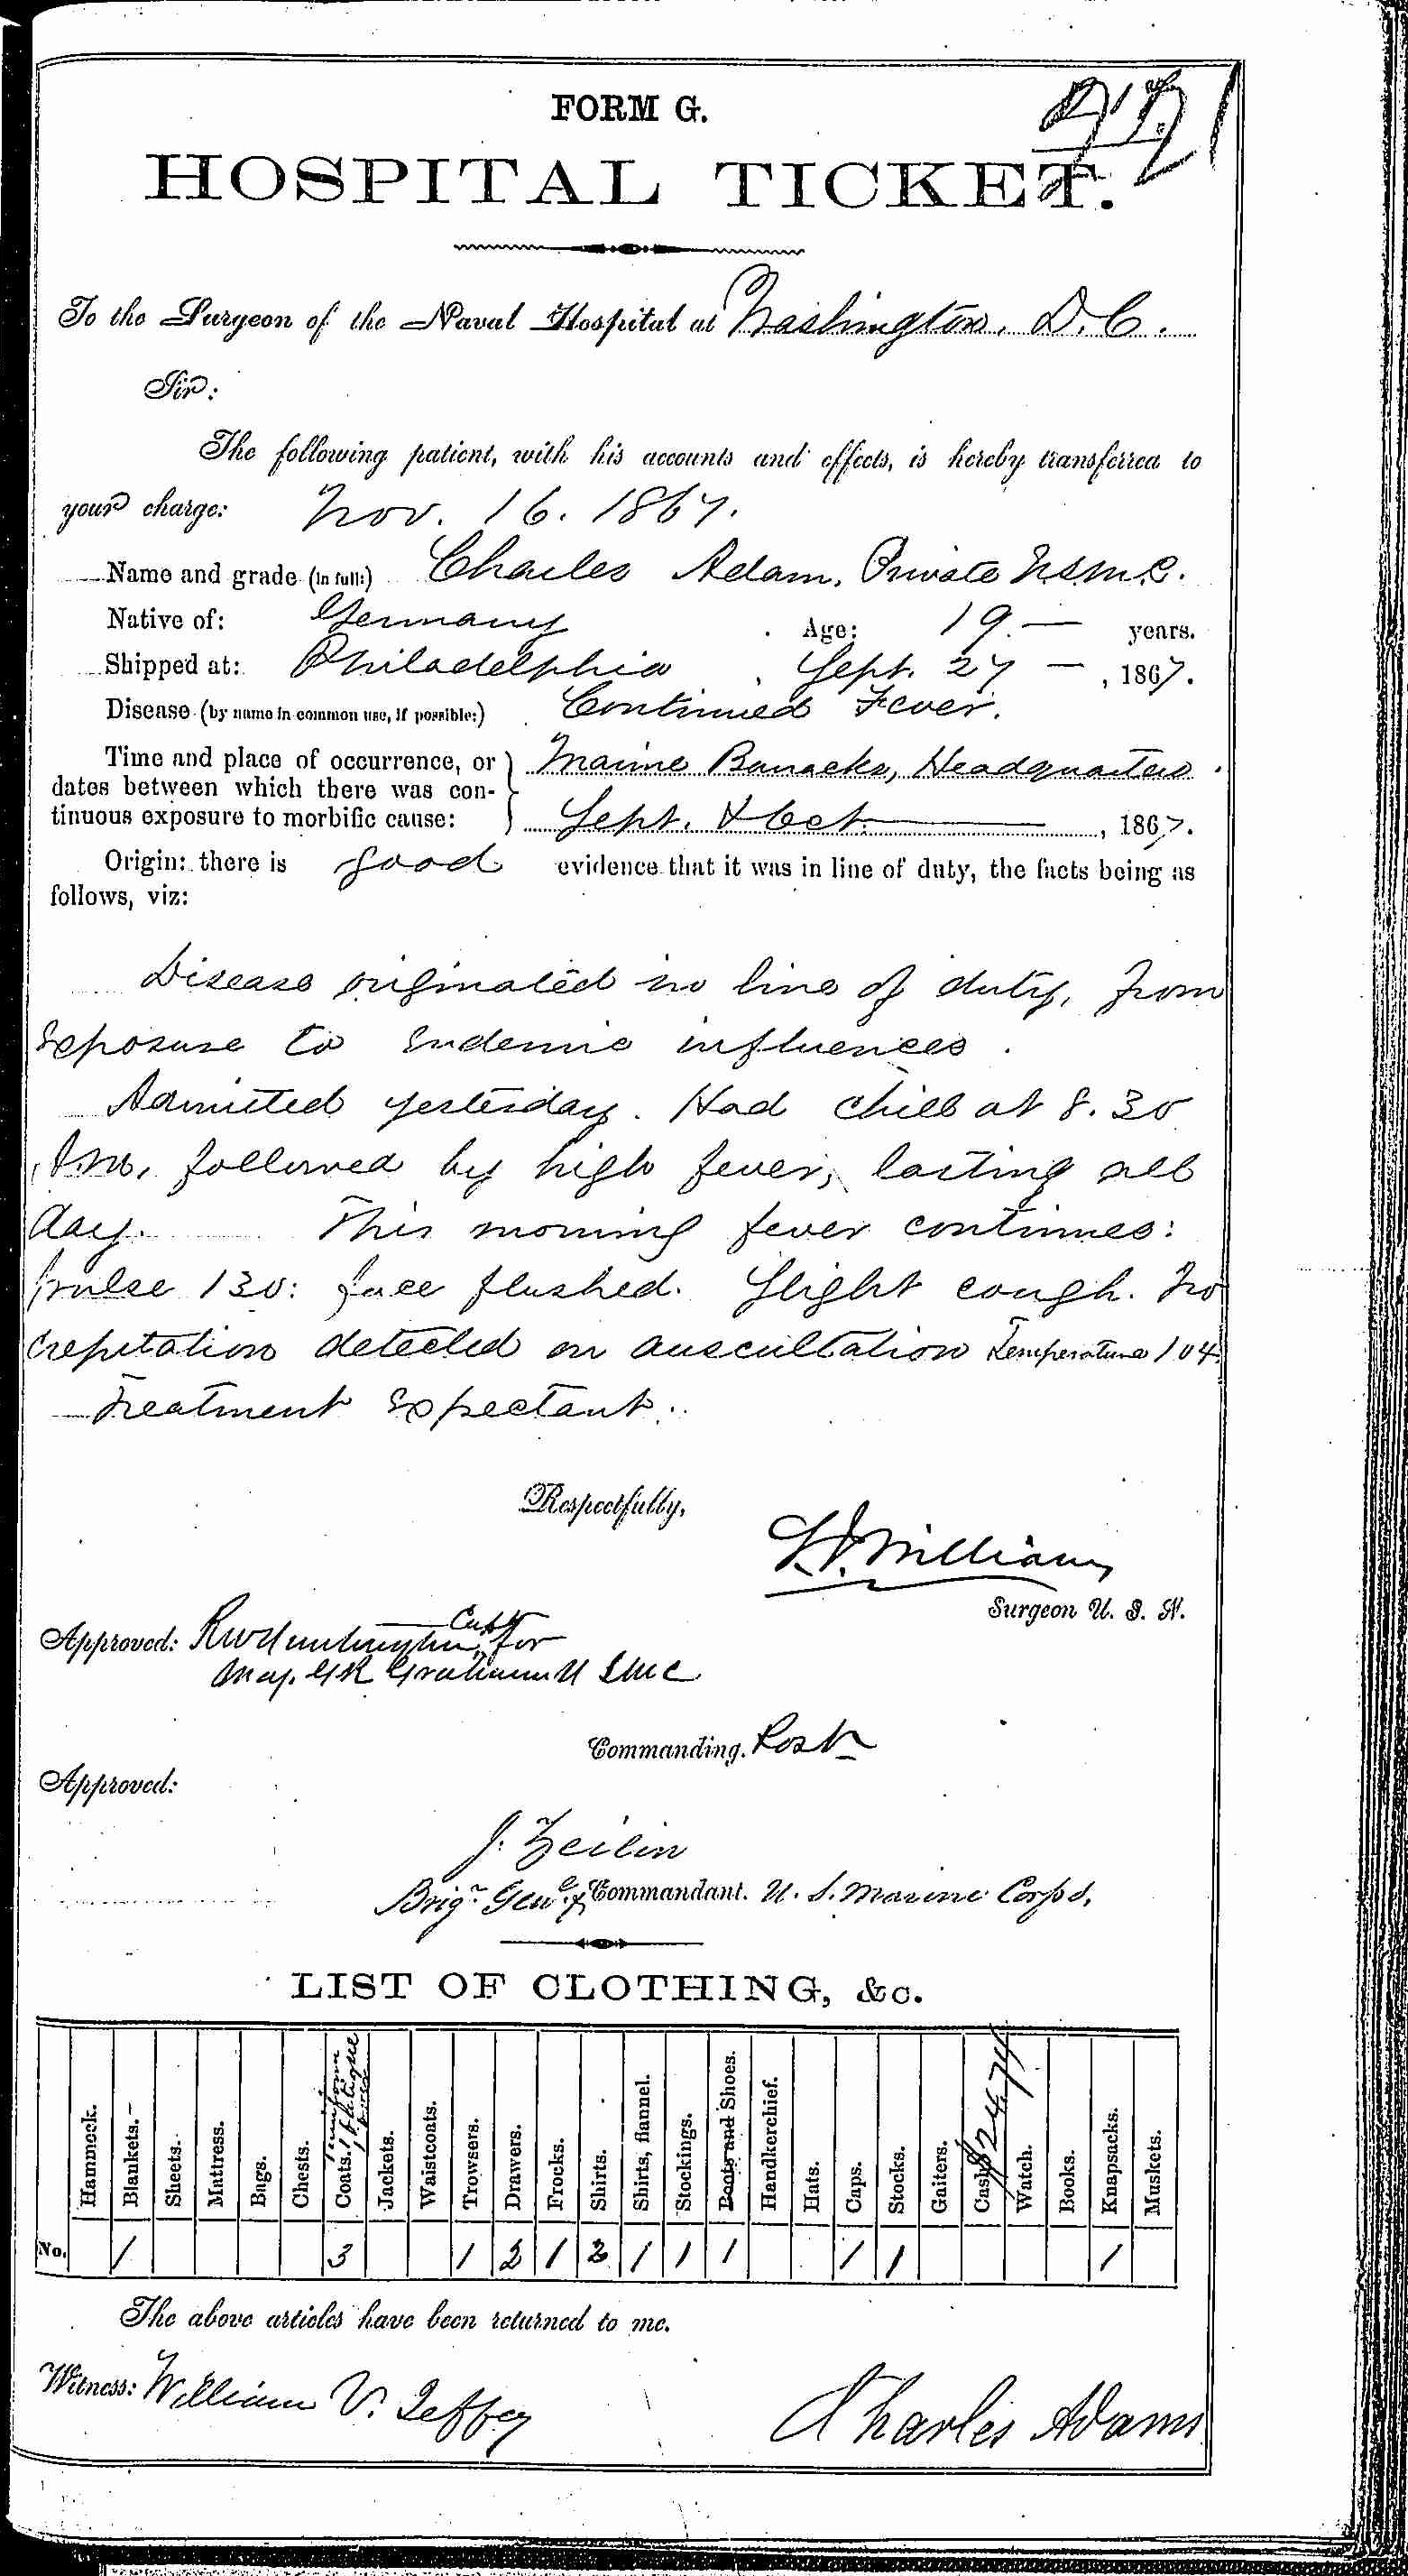 FORM G.
HOSPITAL TICKET.
To the Surgeon of the Naval Hospital at Washington, D.C.
Sir:
The following patient, with his accounts and effects, is hereby transferred to
your charge: Nov. 16. 1867.
Name and grade (in full:) Charles Adam, Private U.S.M.C.
Native of: Germany Age: 19.— years.
Shipped at: Philadelphia Sept. 27 — , 1867.
Disease (by name in common use, if possible:) Continued Fever.
Time and place of occurrence, or Marine Barracks, Headquarters.
dates between which there was con-
tinuous exposure to morbific cause: Sept. & Oct. , 1867.
Origin: there is good evidence that it was in line of duty, the facts being as
follows, viz:
Disease originated in line of duty, from
exposure to Endemic influences.
Admitted yesterday. Had chill at 8.30
A.M., followed by high fever, lasting all
day. This morning fever continues:
pulse 130: face flushed. Slight cough. No
crepitation detected on auscultation Temperature 104.
Treatment Expectant.
Respectfully,
Williams
Surgeon U. S. N.
Approved: RW Huntington, Capt for
Maj. GR Graham U SMC
Commanding. Post
Approved:
J. Zeilin
Brigr Genl & Commandant. U. S. Marine Corps,
LIST OF CLOTHING, &c.
Hammock. Blankets. Sheets. Mattress. Bags. Chests. Coats. 1 uniform 1 fatigue Jackets. Waistcoats. Trowsers. Drawers. Frocks. Shirts. Shirts, flannel. Stockings. Boots and Shoes. Handkerchief. Hats. Caps. Stocks. Gaiters. Cash $24.74 Watch. Books. Knapsacks. Muskets.
No. 1 3 1 2 1 2 1 1 1 1 1 1
The above articles have been returned to me.
Witness: William V. Jeffey Charles Adams